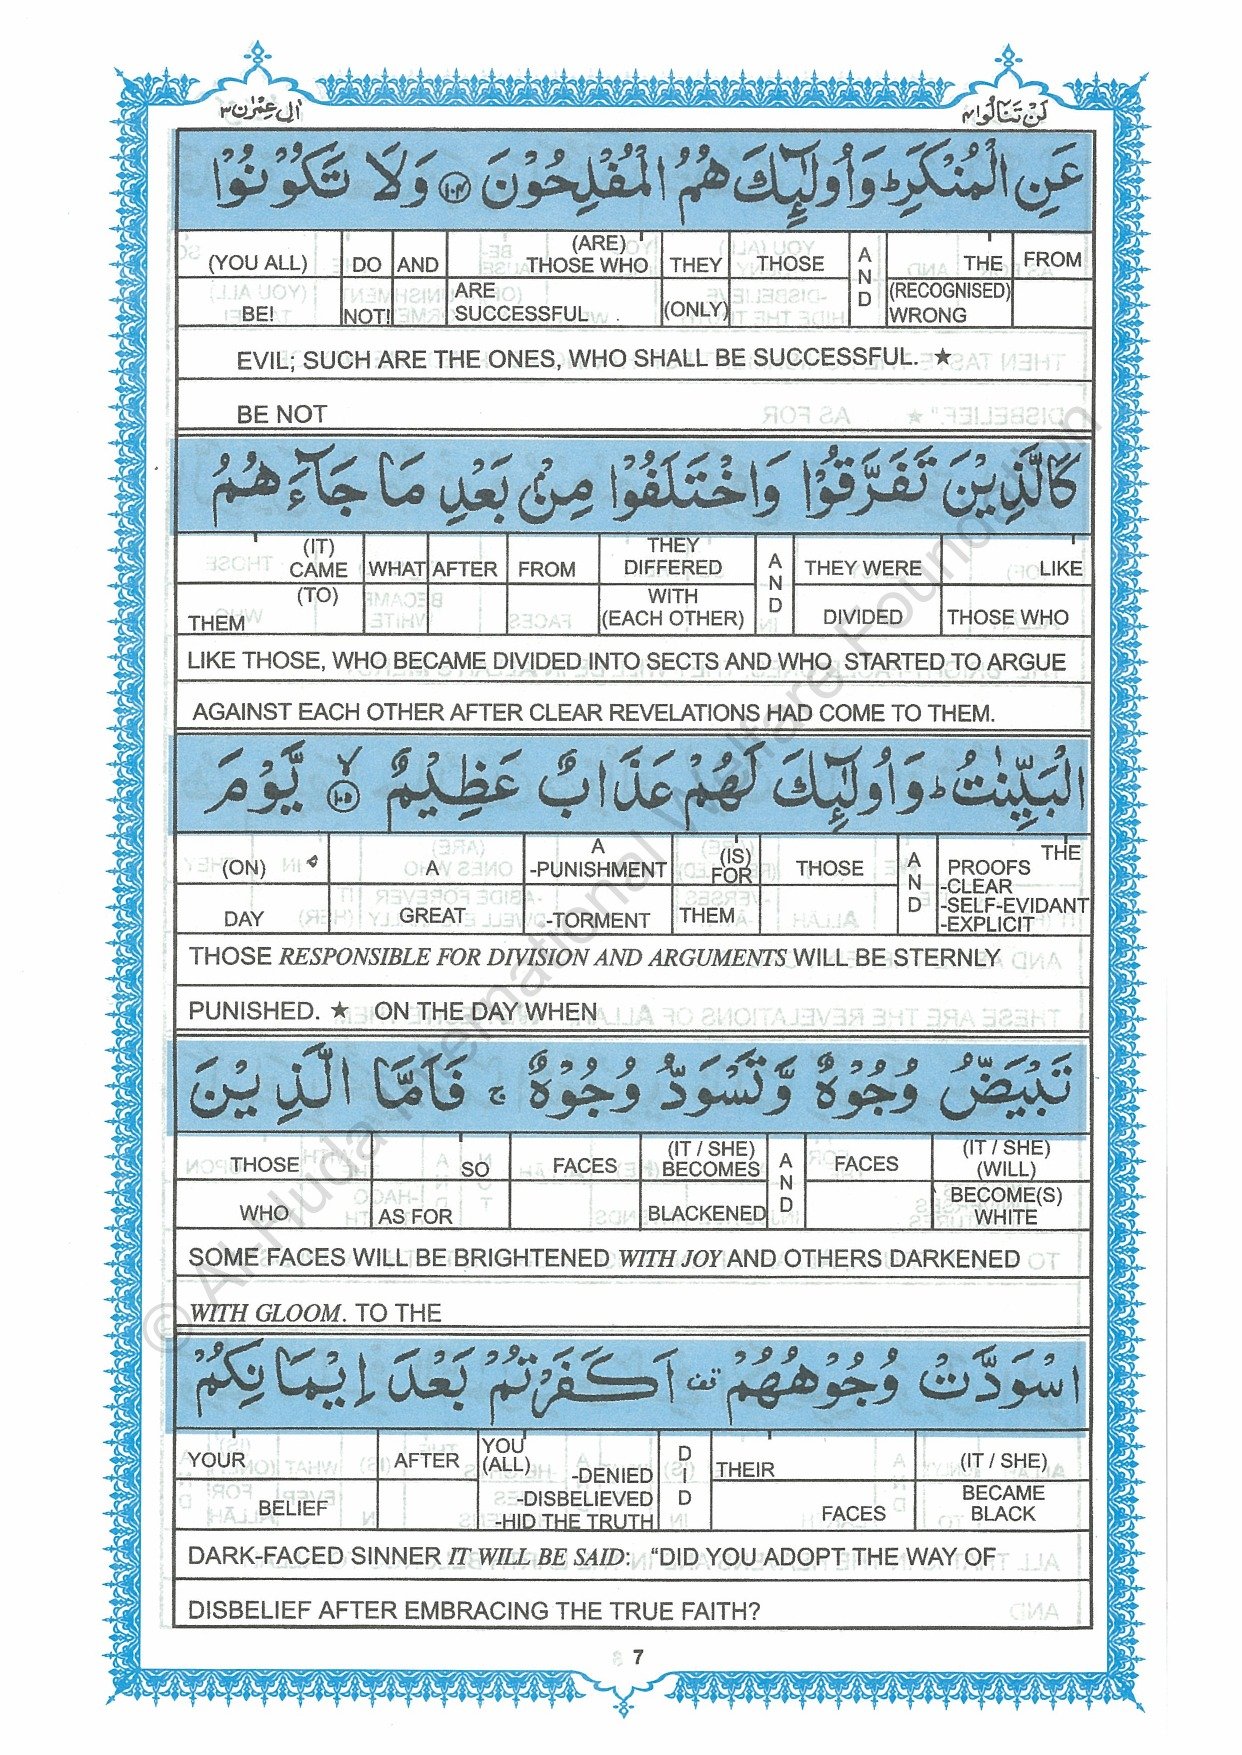 اٰل عِمْرٰن ٣
لَنْ تَنَالُوا ٤
عَنِ الْمُنْكَرِ ؕ وَاُولٰٓئِكَ هُمُ الْمُفْلِحُوْنَ ۝١٠٤ وَلَا تَكُوْنُوْا
(YOU ALL) DO AND (ARE) THOSE WHO THEY THOSE AND THE FROM
BE! NOT! ARE SUCCESSFUL (ONLY) (RECOGNISED) WRONG
EVIL; SUCH ARE THE ONES, WHO SHALL BE SUCCESSFUL. ★
BE NOT
كَالَّذِيْنَ تَفَرَّقُوْا وَاخْتَلَفُوْا مِنْۢ بَعْدِ مَا جَآءَهُمُ
(IT) CAME WHAT AFTER FROM THEY DIFFERED AND THEY WERE LIKE
(TO) THEM WITH (EACH OTHER) DIVIDED THOSE WHO
LIKE THOSE, WHO BECAME DIVIDED INTO SECTS AND WHO STARTED TO ARGUE
AGAINST EACH OTHER AFTER CLEAR REVELATIONS HAD COME TO THEM.
الْبَيِّنٰتُ ؕ وَاُولٰٓئِكَ لَهُمْ عَذَابٌ عَظِيْمٌ ۙ۝١٠٥ يَّوْمَ
(ON) A A -PUNISHMENT (IS) FOR THOSE AND THE PROOFS
DAY GREAT -TORMENT THEM -CLEAR -SELF-EVIDANT -EXPLICIT
THOSE RESPONSIBLE FOR DIVISION AND ARGUMENTS WILL BE STERNLY
PUNISHED. ★ ON THE DAY WHEN
تَبْيَضُّ وُجُوْهٌ وَّتَسْوَدُّ وُجُوْهٌ ۚ فَاَمَّا الَّذِيْنَ
THOSE SO FACES (IT / SHE) BECOMES AND FACES (IT / SHE) (WILL)
WHO AS FOR BLACKENED BECOME(S) WHITE
SOME FACES WILL BE BRIGHTENED WITH JOY AND OTHERS DARKENED
WITH GLOOM. TO THE
اسْوَدَّتْ وُجُوْهُهُمْ قف اَكَفَرْتُمْ بَعْدَ اِيْمَانِكُمْ
YOUR AFTER YOU (ALL) -DENIED DID THEIR (IT / SHE)
BELIEF -DISBELIEVED -HID THE TRUTH FACES BECAME BLACK
DARK-FACED SINNER IT WILL BE SAID: “DID YOU ADOPT THE WAY OF
DISBELIEF AFTER EMBRACING THE TRUE FAITH?
7
© Al-Huda International Welfare Foundation